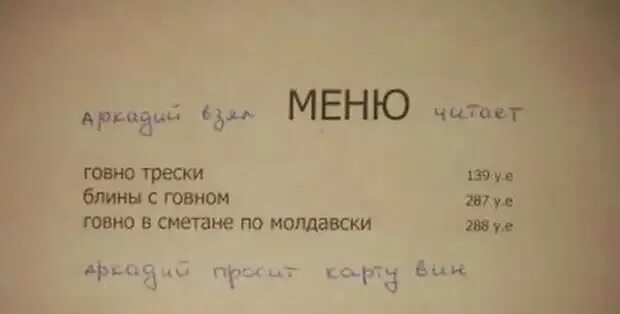 аркадий взял МЕНЮ читает
говно трески 139 у.е
блины с говном 287 у.е
говно в сметане по молдавски 288 у.е
аркадий просит карту вин